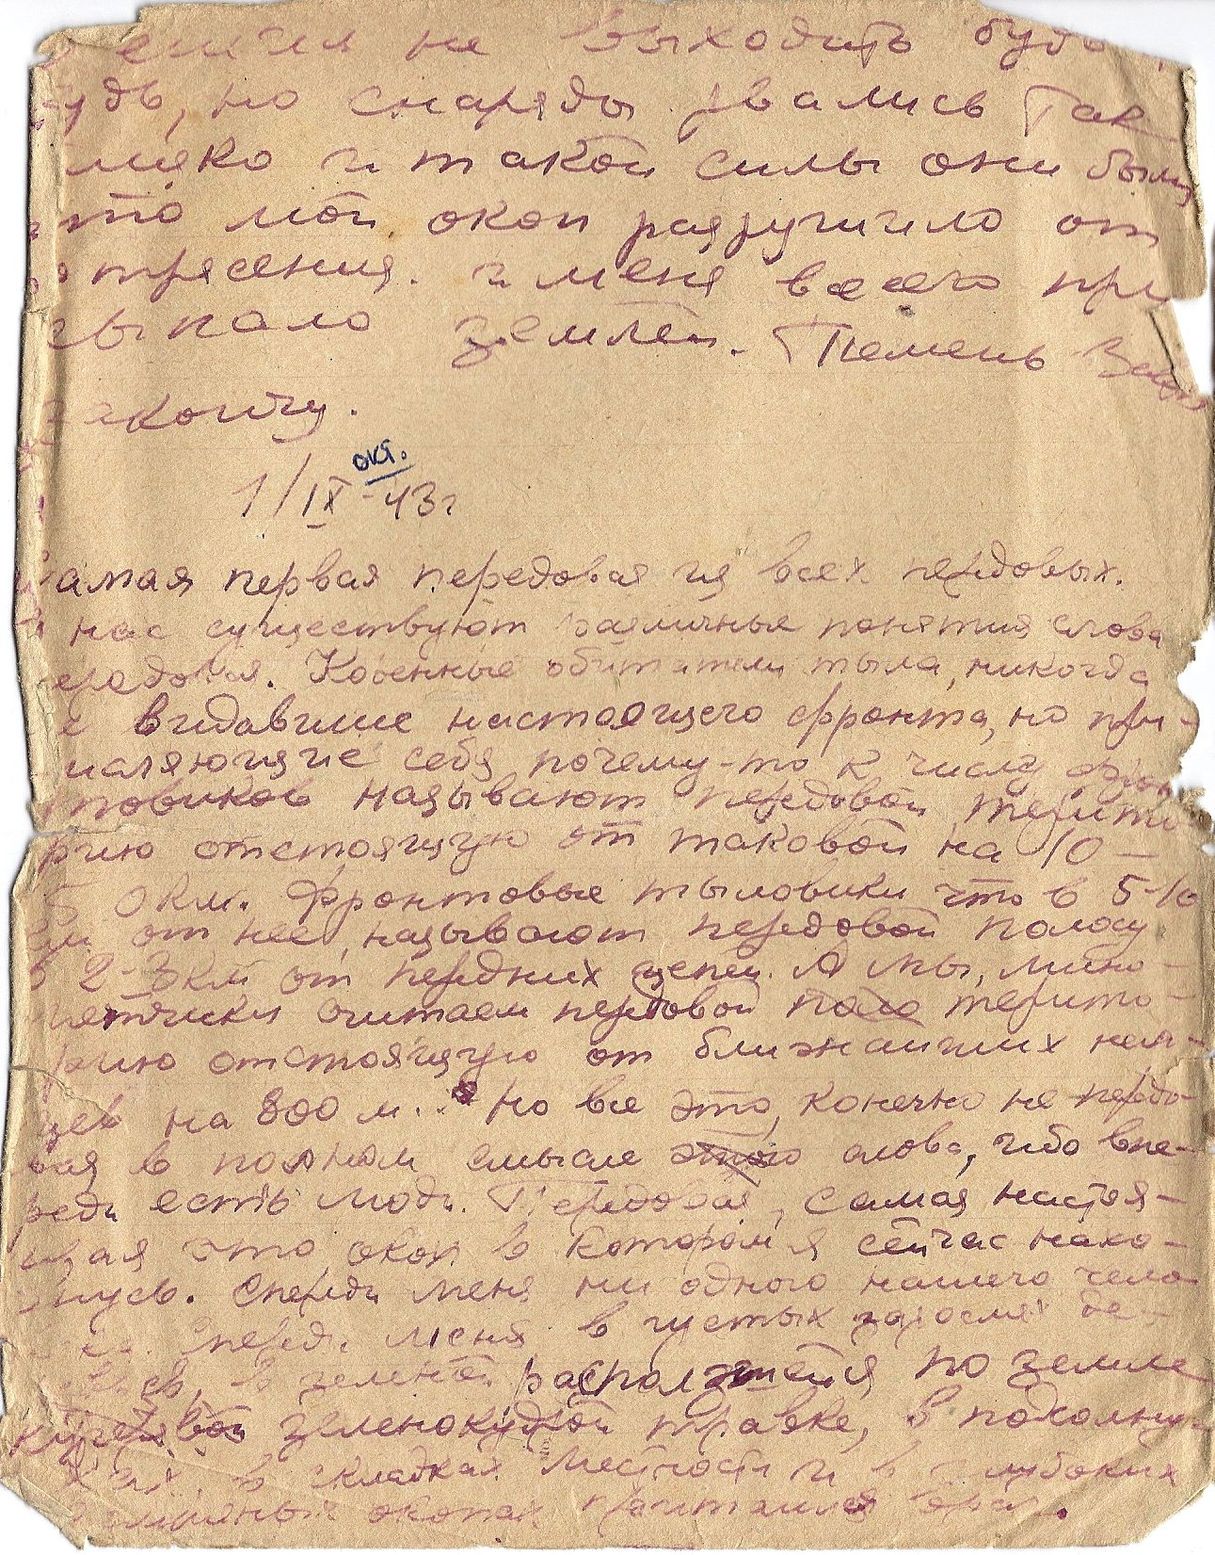 не выходить будь
но снаряды рвались так
и такой силы они были
что мой окоп разрушило от
отрясения. и меня всего при
сыпало землёй. Темень
закончу.
окт.
1/IX-43г
амая первая передовая из всех передовых.
нас существуют различные понятия слова
ередовая. Коренные обитатели тыла, никогда
е видавшие настоящего фронта, но при-
числяющие себя почему-то к числу фрон
товиков называют передовой терито
рию отстоящую от таковой на 10-
50 км. Фронтовые тыловики что в 5-10
км от нее, называют передовой полосу
в 2-3 км от передних цепей. А мы, мино-
метчики считаем передовой поло терито-
рию отстоящую от ближайших нем-
цев на 800 м... Но все это, конечно не передо-
вая в полном смысле этого слова, ибо впе-
реди есть люди. Передовая, самая настоя-
щая это окоп в котором я сейчас нахо-
жусь. Спереди меня ни одного нашего чело
Спереди меня в густых зарослях де-
ревьев, в зеленой расползшейся по земле
зеленокудрой травке, в подсолну-
хах, в складках местности и в глубоких
окопах притаился враг.